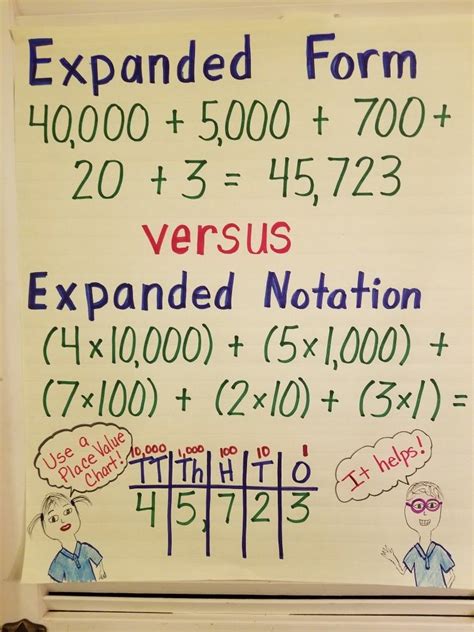 Expanded Form
40,000 + 5,000 + 700 +
20 + 3 = 45,723
versus
Expanded Notation
(4×10,000) + (5×1,000) +
(7×100) + (2×10) + (3×1) =
Use a
Place Value
Chart!
10,000 1,000 100 10 1
TT Th H T O
4 5, 7 2 3
It helps!